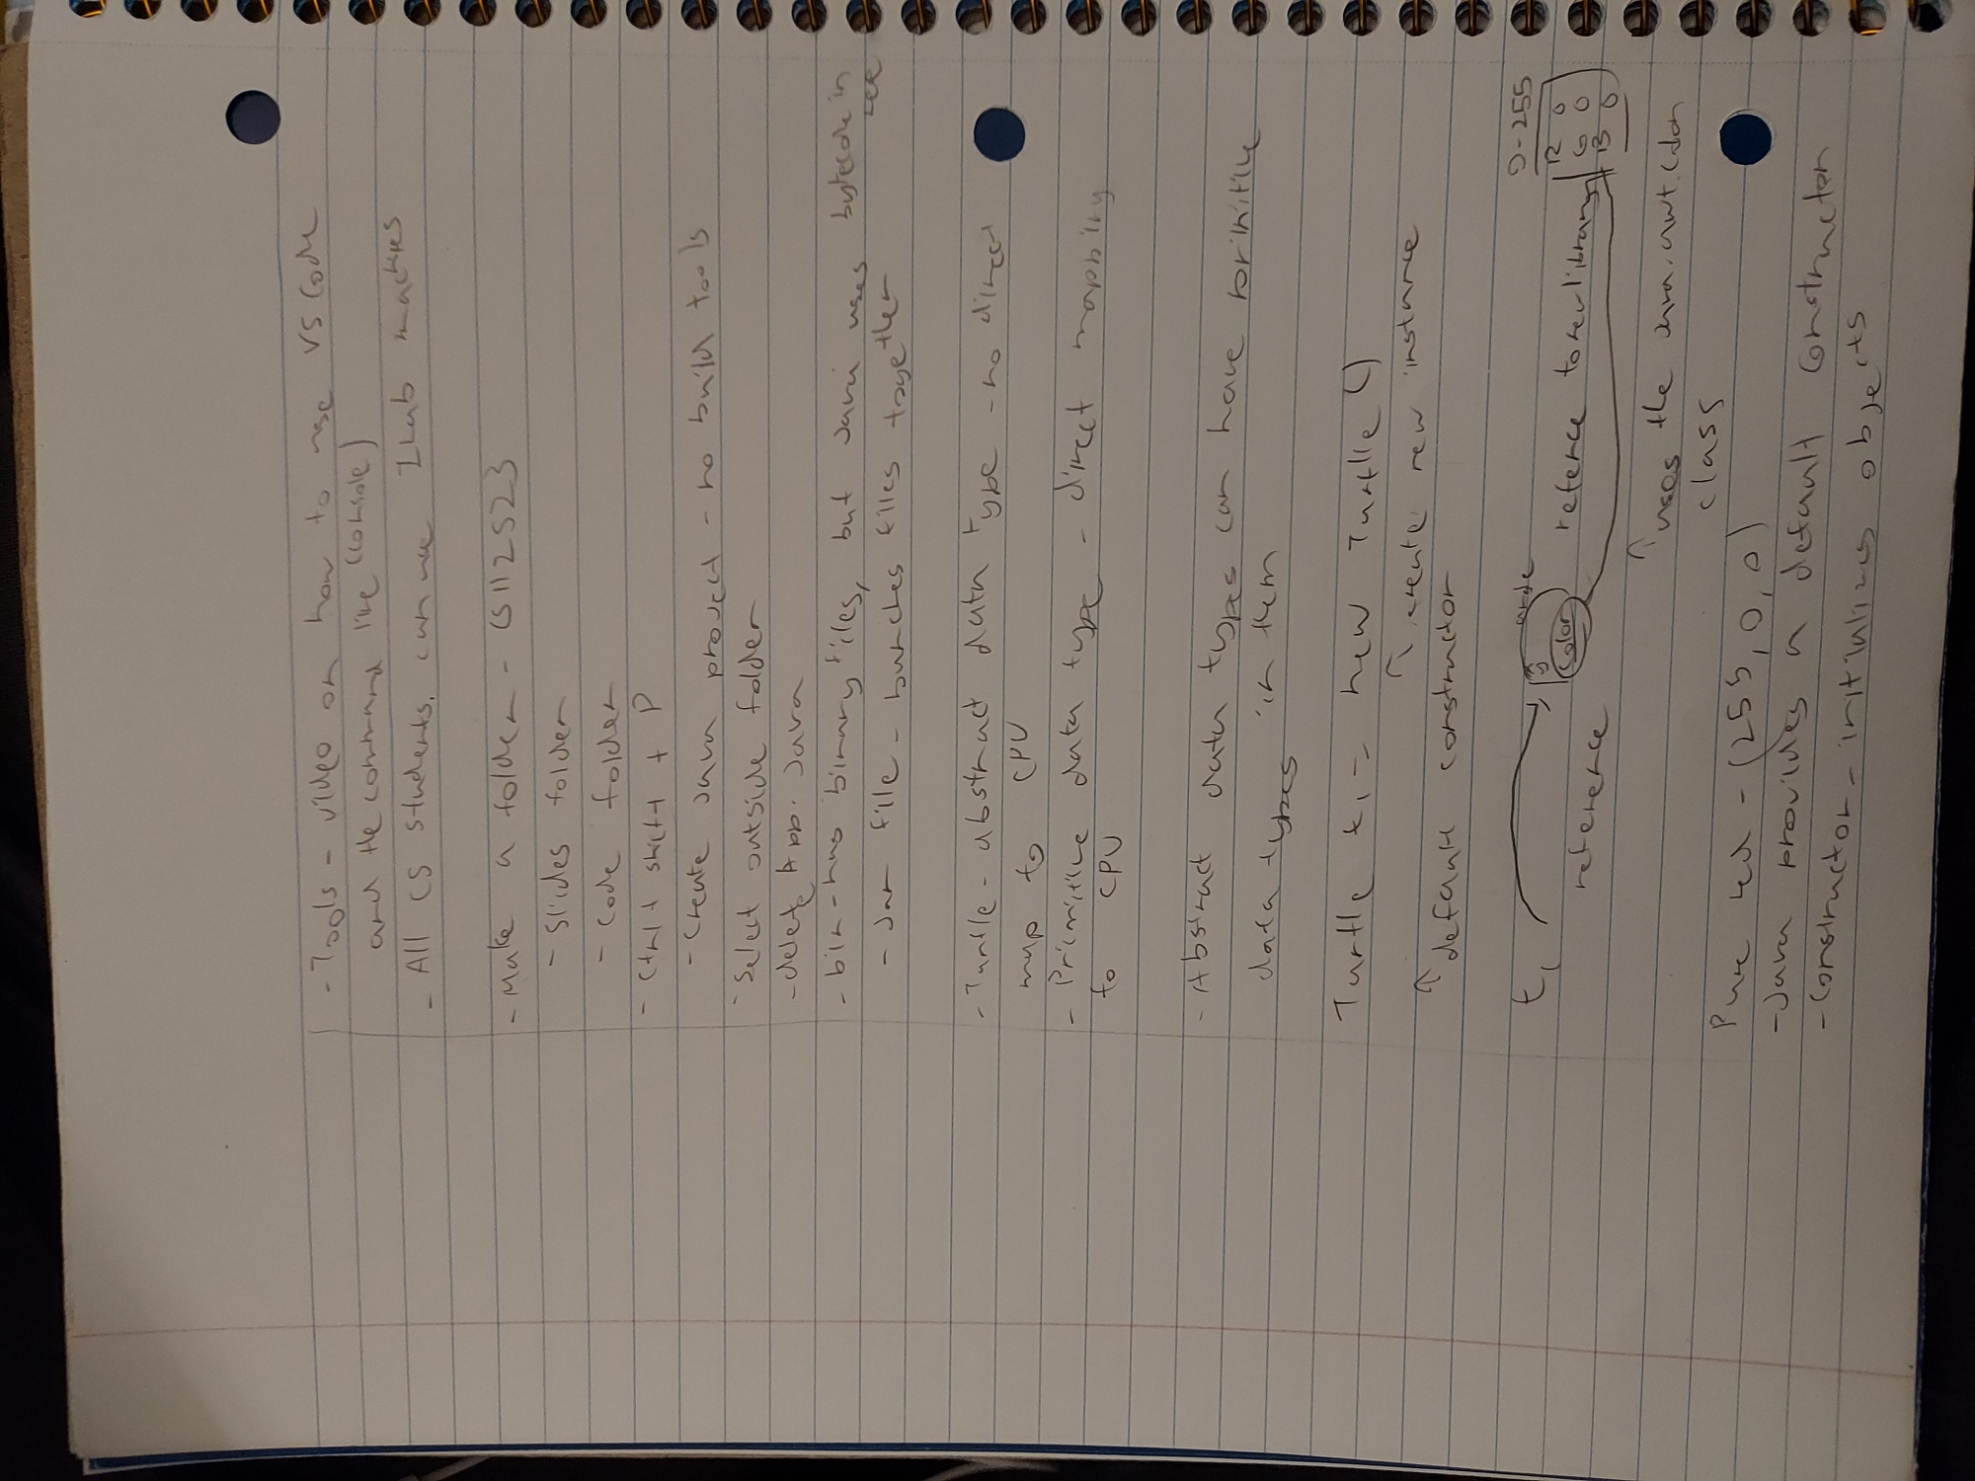 - Tools - video on how to use VS Code
and the command line (console)
- All CS students can use Ilab machines
- Make a folder - CS112S23
- Slides folder
- Code folder
- Ctrl + shift + P
- Create Java project - no build tools
- Select outside folder
- delete App.java
- bin - has binary files, but Java uses bytecode in
- Jar file - bunches files together
- Turtle - abstract data type - no direct
map to CPU
- Primitive data type - direct mapability
to CPU
- Abstract data types can have primitive
data types in them
Turtle t1 = new Turtle()
↑ create new instance
↑ default constructor
0-255
t1 y color reference to red library R 0
G 0
B 0
reference
↑ uses the java.awt.Color
class
Pure red - (255, 0, 0)
- Java provides a default constructor
- Constructor - initializes objects